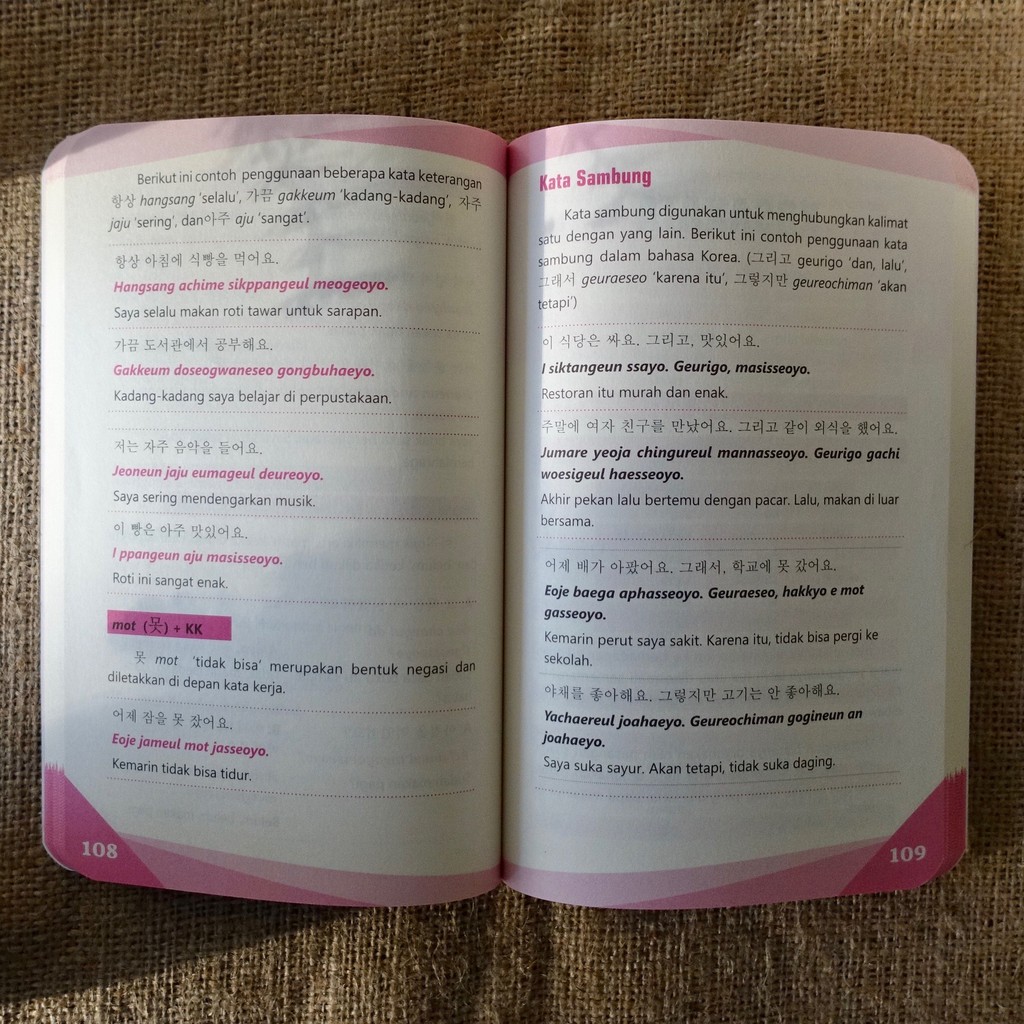 Berikut ini contoh penggunaan beberapa kata keterangan
항상 hangsang 'selalu', 가끔 gakkeum 'kadang-kadang', 자주
jaju 'sering', dan아주 aju 'sangat'.
항상 아침에 식빵을 먹어요.
Hangsang achime sikppangeul meogeoyo.
Saya selalu makan roti tawar untuk sarapan.
가끔 도서관에서 공부해요.
Gakkeum doseogwaneseo gongbuhaeyo.
Kadang-kadang saya belajar di perpustakaan.
저는 자주 음악을 들어요.
Jeoneun jaju eumageul deureoyo.
Saya sering mendengarkan musik.
이 빵은 아주 맛있어요.
I ppangeun aju masisseoyo.
Roti ini sangat enak.
mot (못) + KK
못 mot 'tidak bisa' merupakan bentuk negasi dan
diletakkan di depan kata kerja.
어제 잠을 못 잤어요.
Eoje jameul mot jasseoyo.
Kemarin tidak bisa tidur.
108
Kata Sambung
Kata sambung digunakan untuk menghubungkan kalimat
satu dengan yang lain. Berikut ini contoh penggunaan kata
sambung dalam bahasa Korea. (그리고 geurigo 'dan, lalu',
그래서 geuraeseo 'karena itu', 그렇지만 geureochiman 'akan
tetapi')
이 식당은 싸요. 그리고, 맛있어요.
I siktangeun ssayo. Geurigo, masisseoyo.
Restoran itu murah dan enak.
주말에 여자 친구를 만났어요. 그리고 같이 외식을 했어요.
Jumare yeoja chingureul mannasseoyo. Geurigo gachi
woesigeul haesseoyo.
Akhir pekan lalu bertemu dengan pacar. Lalu, makan di luar
bersama.
어제 배가 아팠어요. 그래서, 학교에 못 갔어요.
Eoje baega aphasseoyo. Geuraeseo, hakkyo e mot
gasseoyo.
Kemarin perut saya sakit. Karena itu, tidak bisa pergi ke
sekolah.
야채를 좋아해요. 그렇지만 고기는 안 좋아해요.
Yachaereul joahaeyo. Geureochiman gogineun an
joahaeyo.
Saya suka sayur. Akan tetapi, tidak suka daging.
109